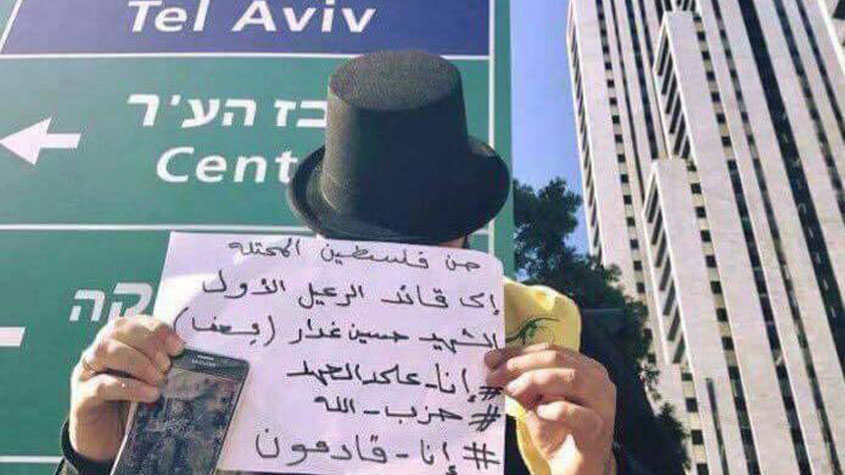 Tel Aviv
כז הע׳ר
Cent
קה
من فلسطين المحتله
إلى قائد الرعيل الأول
الشهيد حسين غدار
#إنا-على-العهد
#حزب-الله
#إنا-قادمون